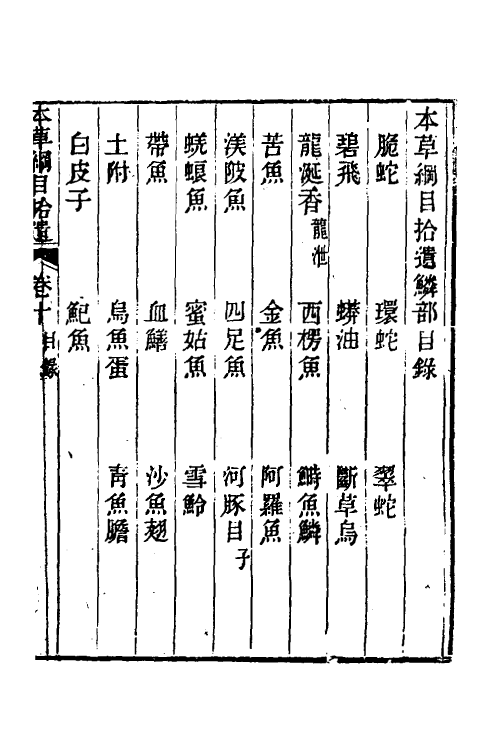 本草綱目拾遺鱗部目錄
脆蛇 環蛇 翠蛇
碧飛 蟒油 斷草烏
龍涎香龍泄 西楞魚 鰣魚鱗
苦魚 金魚 阿羅魚
渼陂魚 四足魚 河豚目子
蟯蜋魚 蜜姑魚 雪鈴
帶魚 血鱔 沙魚翅
土附 烏魚蛋 青魚膽
白皮子 鮑魚
本草綱目拾遺 卷十 目錄